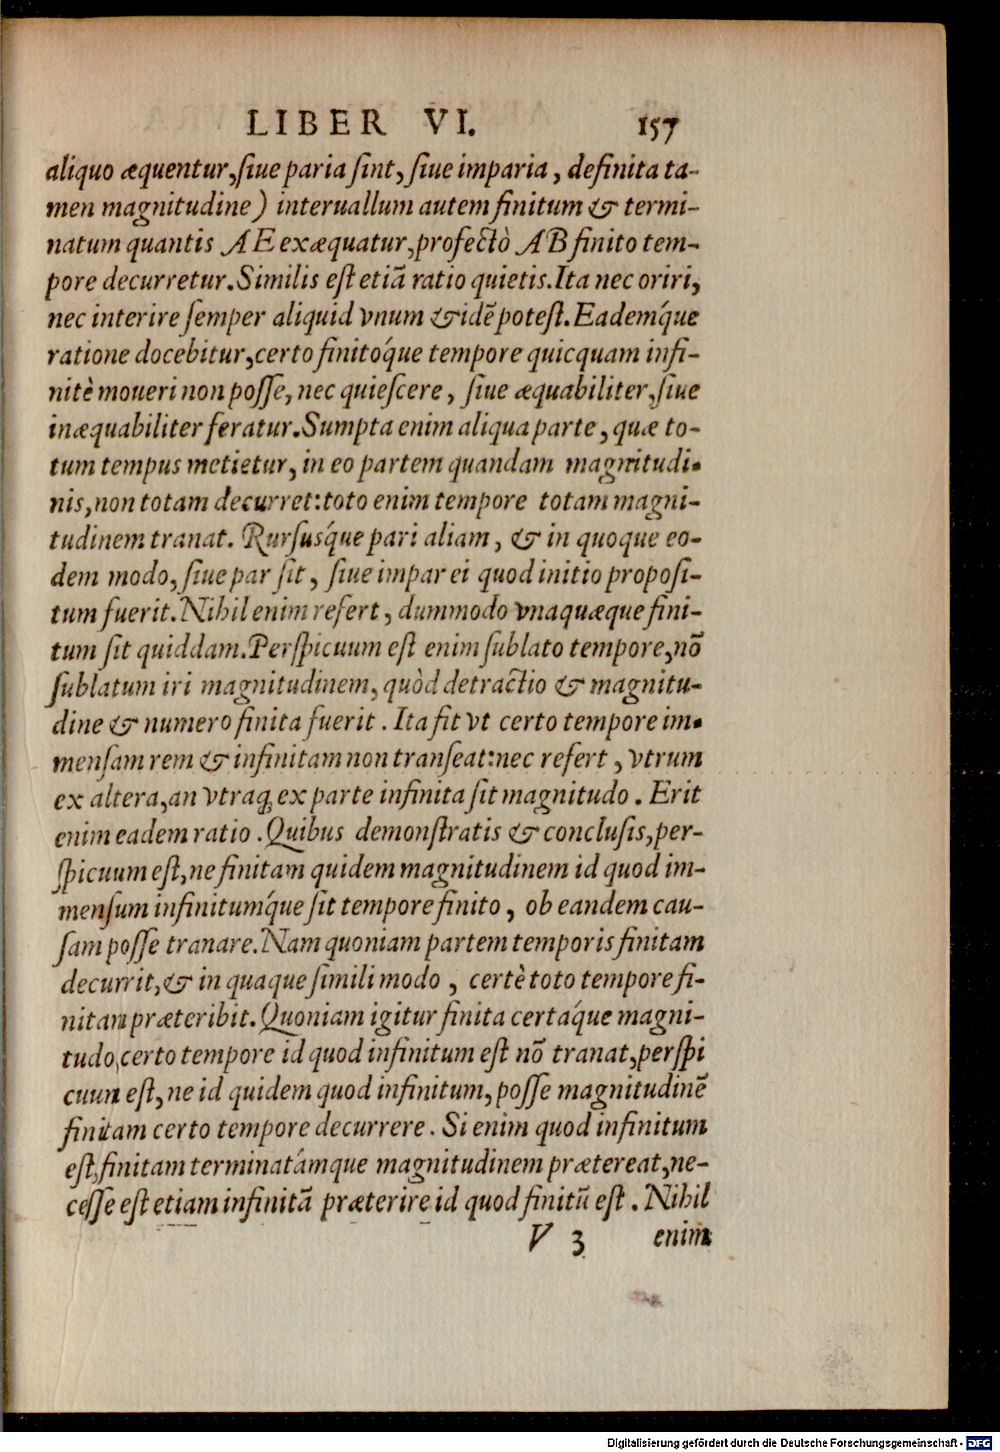 LIBER VI. 157
aliquo æquentur, siue paria sint, siue imparia, definita ta-
men magnitudine) interuallum autem finitum & termi-
natum quantis AE exæquatur, profectò AB finito tem-
pore decurretur. Similis est etiã ratio quietis. Ita nec oriri,
nec interire semper aliquid vnum & idẽ potest. Eadémque
ratione docebitur, certo finitóque tempore quicquam infi-
nitè moueri non posse, nec quiescere, siue æquabiliter, siue
inæquabiliter feratur. Sumpta enim aliqua parte, quæ to-
tum tempus metietur, in eo partem quandam magnitudi-
nis, non totam decurret: toto enim tempore totam magni-
tudinem tranat. Rursúsque pari aliam, & in quoque eo-
dem modo, siue par sit, siue impar ei quod initio proposi-
tum fuerit. Nihil enim refert, dummodo vnaquæque fini-
tum sit quiddam. Perspicuum est enim sublato tempore, nõ
sublatum iri magnitudinem, quòd detractio & magnitu-
dine & numero finita fuerit. Ita fit vt certo tempore im-
mensam rem & infinitam non transeat: nec refert, vtrum
ex altera, an vtraq; ex parte infinita sit magnitudo. Erit
enim eadem ratio. Quibus demonstratis & conclusis, per-
spicuum est, ne finitam quidem magnitudinem id quod im-
mensum infinitúmque sit tempore finito, ob eandem cau-
sam posse tranare. Nam quoniam partem temporis finitam
decurrit, & in quaque simili modo, certè toto tempore fi-
nitam præteribit. Quoniam igitur finita certáque magni-
tudo, certo tempore id quod infinitum est nõ tranat, perspi
cuum est, ne id quidem quod infinitum, posse magnitudinẽ
finitam certo tempore decurrere. Si enim quod infinitum
est, finitam terminatámque magnitudinem prætereat, ne-
cesse est etiam infinitã præterire id quod finitũ est. Nihil
V 3 enim
Digitalisierung gefördert durch die Deutsche Forschungsgemeinschaft - DFG